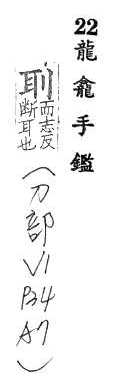 22龍龕手鑑
刵而志反
断耳也
(刀部V1
P34
A7)